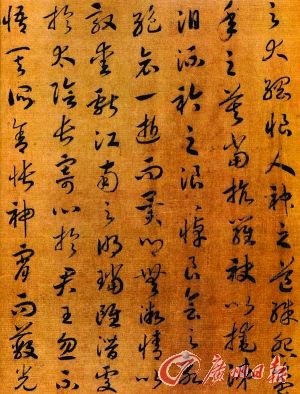 之大綱恨人神之道殊怨盛
年之莫當抗羅袂以掩涕
泪流襟之浪〻悼良會之永
絕哀一逝而異鄉無微情以
效愛獻江南之明璫雖潛處
於太陰長寄心於君王忽不
悟其所舍悵神霄而蔽光
廣州日報